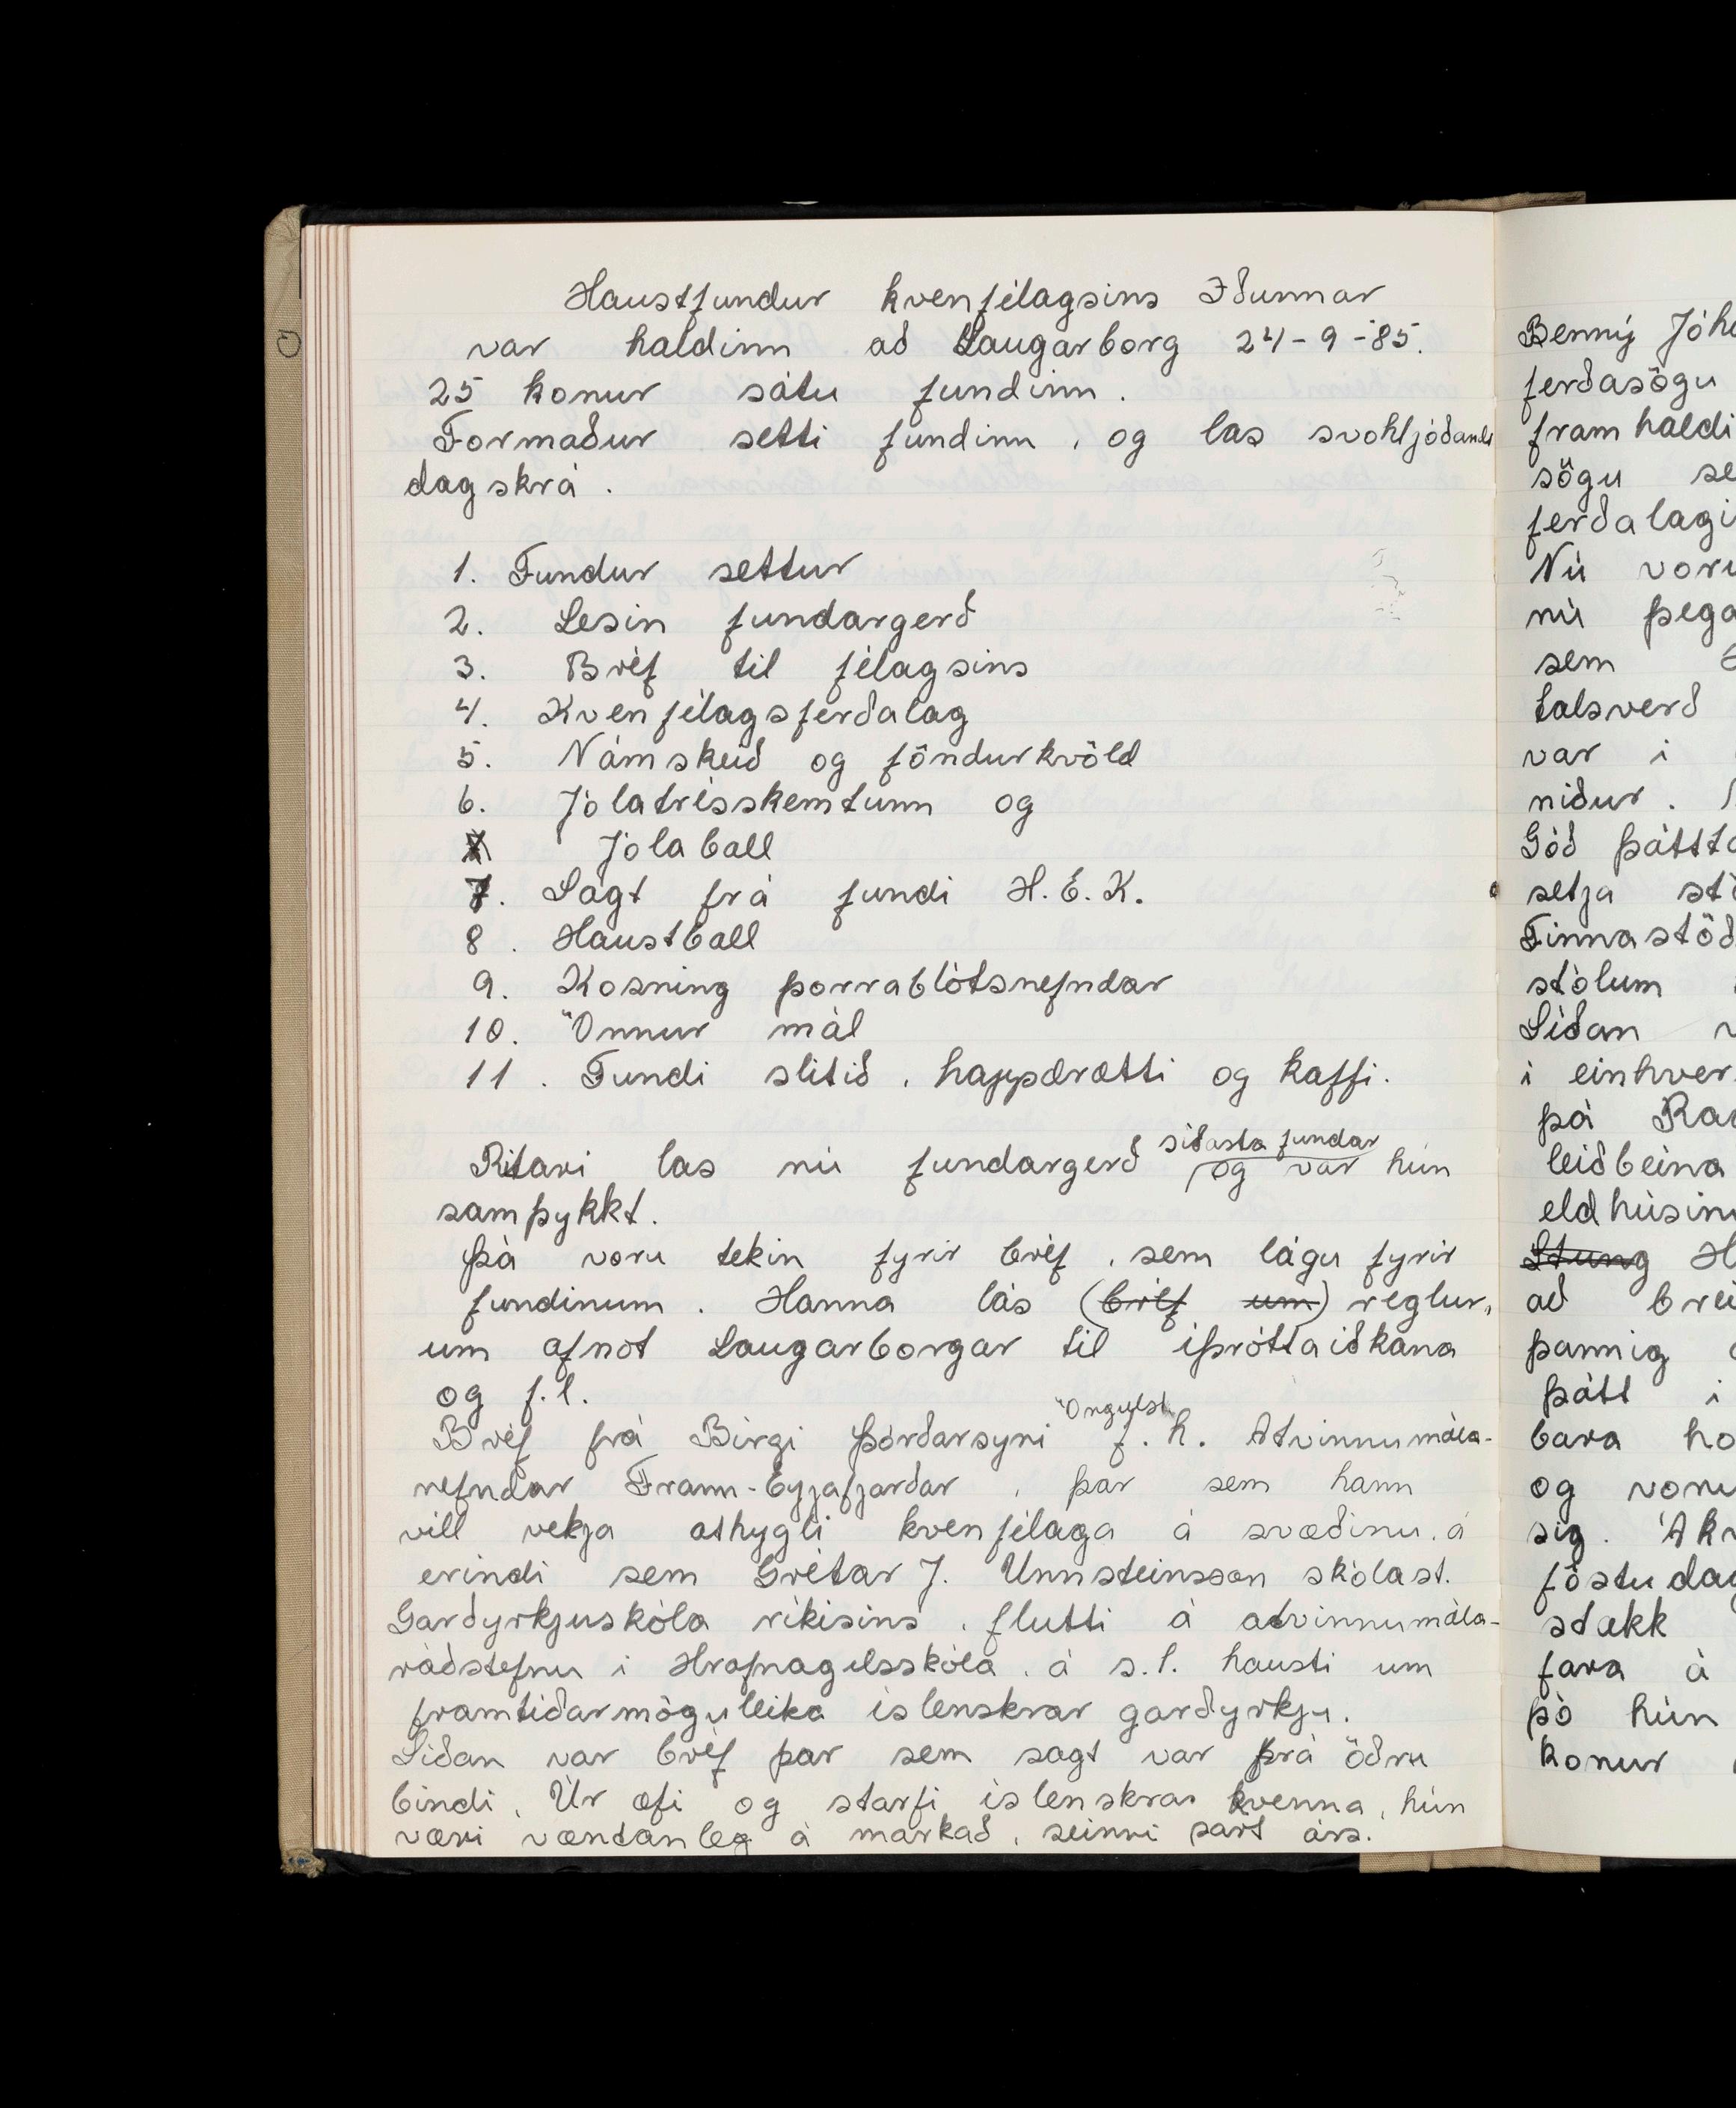 Haustfundur kvenfélagsins Iðunnar
var haldinn að Laugarborg 24-9-'85.
25 konur sátu fundinn.
Formaður setti fundinn, og las svohljóðandi
dagskrá.
1. Fundur settur
2. Lesin fundargerð
3. Bréf til félagsins
4. Kvenfélagsferðalag
5. Námskeið og föndurkvöld
6. Jólatrésskemtunn og
Jólaball
7. Sagt frá fundi H.E.K.
8. Haustball
9. Kosning þorrablótsnefndar
10. Önnur mál
11. Fundi slitið, happdrætti og kaffi.
Ritari las nú fundargerð síðasta fundar og var hún
samþykkt.
Þá voru tekin fyrir bréf, sem lágu fyrir
fundinum. Hanna lás (bréf um) reglur,
um afnot Laugarborgar til íþróttaiðkana
og f.l.
Bréf frá Birgi Þórðarsyni Öngulst. f.h. Atvinnumála-
nefndar Fram-Eyjafjarðar, þar sem hann
vill vekja athygli kvenfélaga á svæðinu, á
erindi sem Grétar J. Unnsteinsson skólast.
Garðyrkjuskóla ríkisins, flutti á atvinnumála-
ráðstefnu i Hrafnagilsskóla, á s.l. hausti um
framtíðarmöguleika íslenskrar garðyrkju.
Síðan var bréf þar sem sagt var frá öðru
bindi, Úr æfi og starfi íslenskra kvenna, hún
væri væntanleg á markað, seinni part árs.
Benný Jóh
ferðasögu
framhaldi
sögu se
ferðalagi
Nú voru
nú þega
sem
talsverð
var i
niður.
Góð þátt
setja st
Finnastöð
stólum
Síðan v
í einhver
þá Ra
leiðbeina
eldhúsinu
Stung H
að brei
þannig
þátt i
bara ho
og voru
sig. Ákv
föstudag
stækk
fara á
þó hún
konur